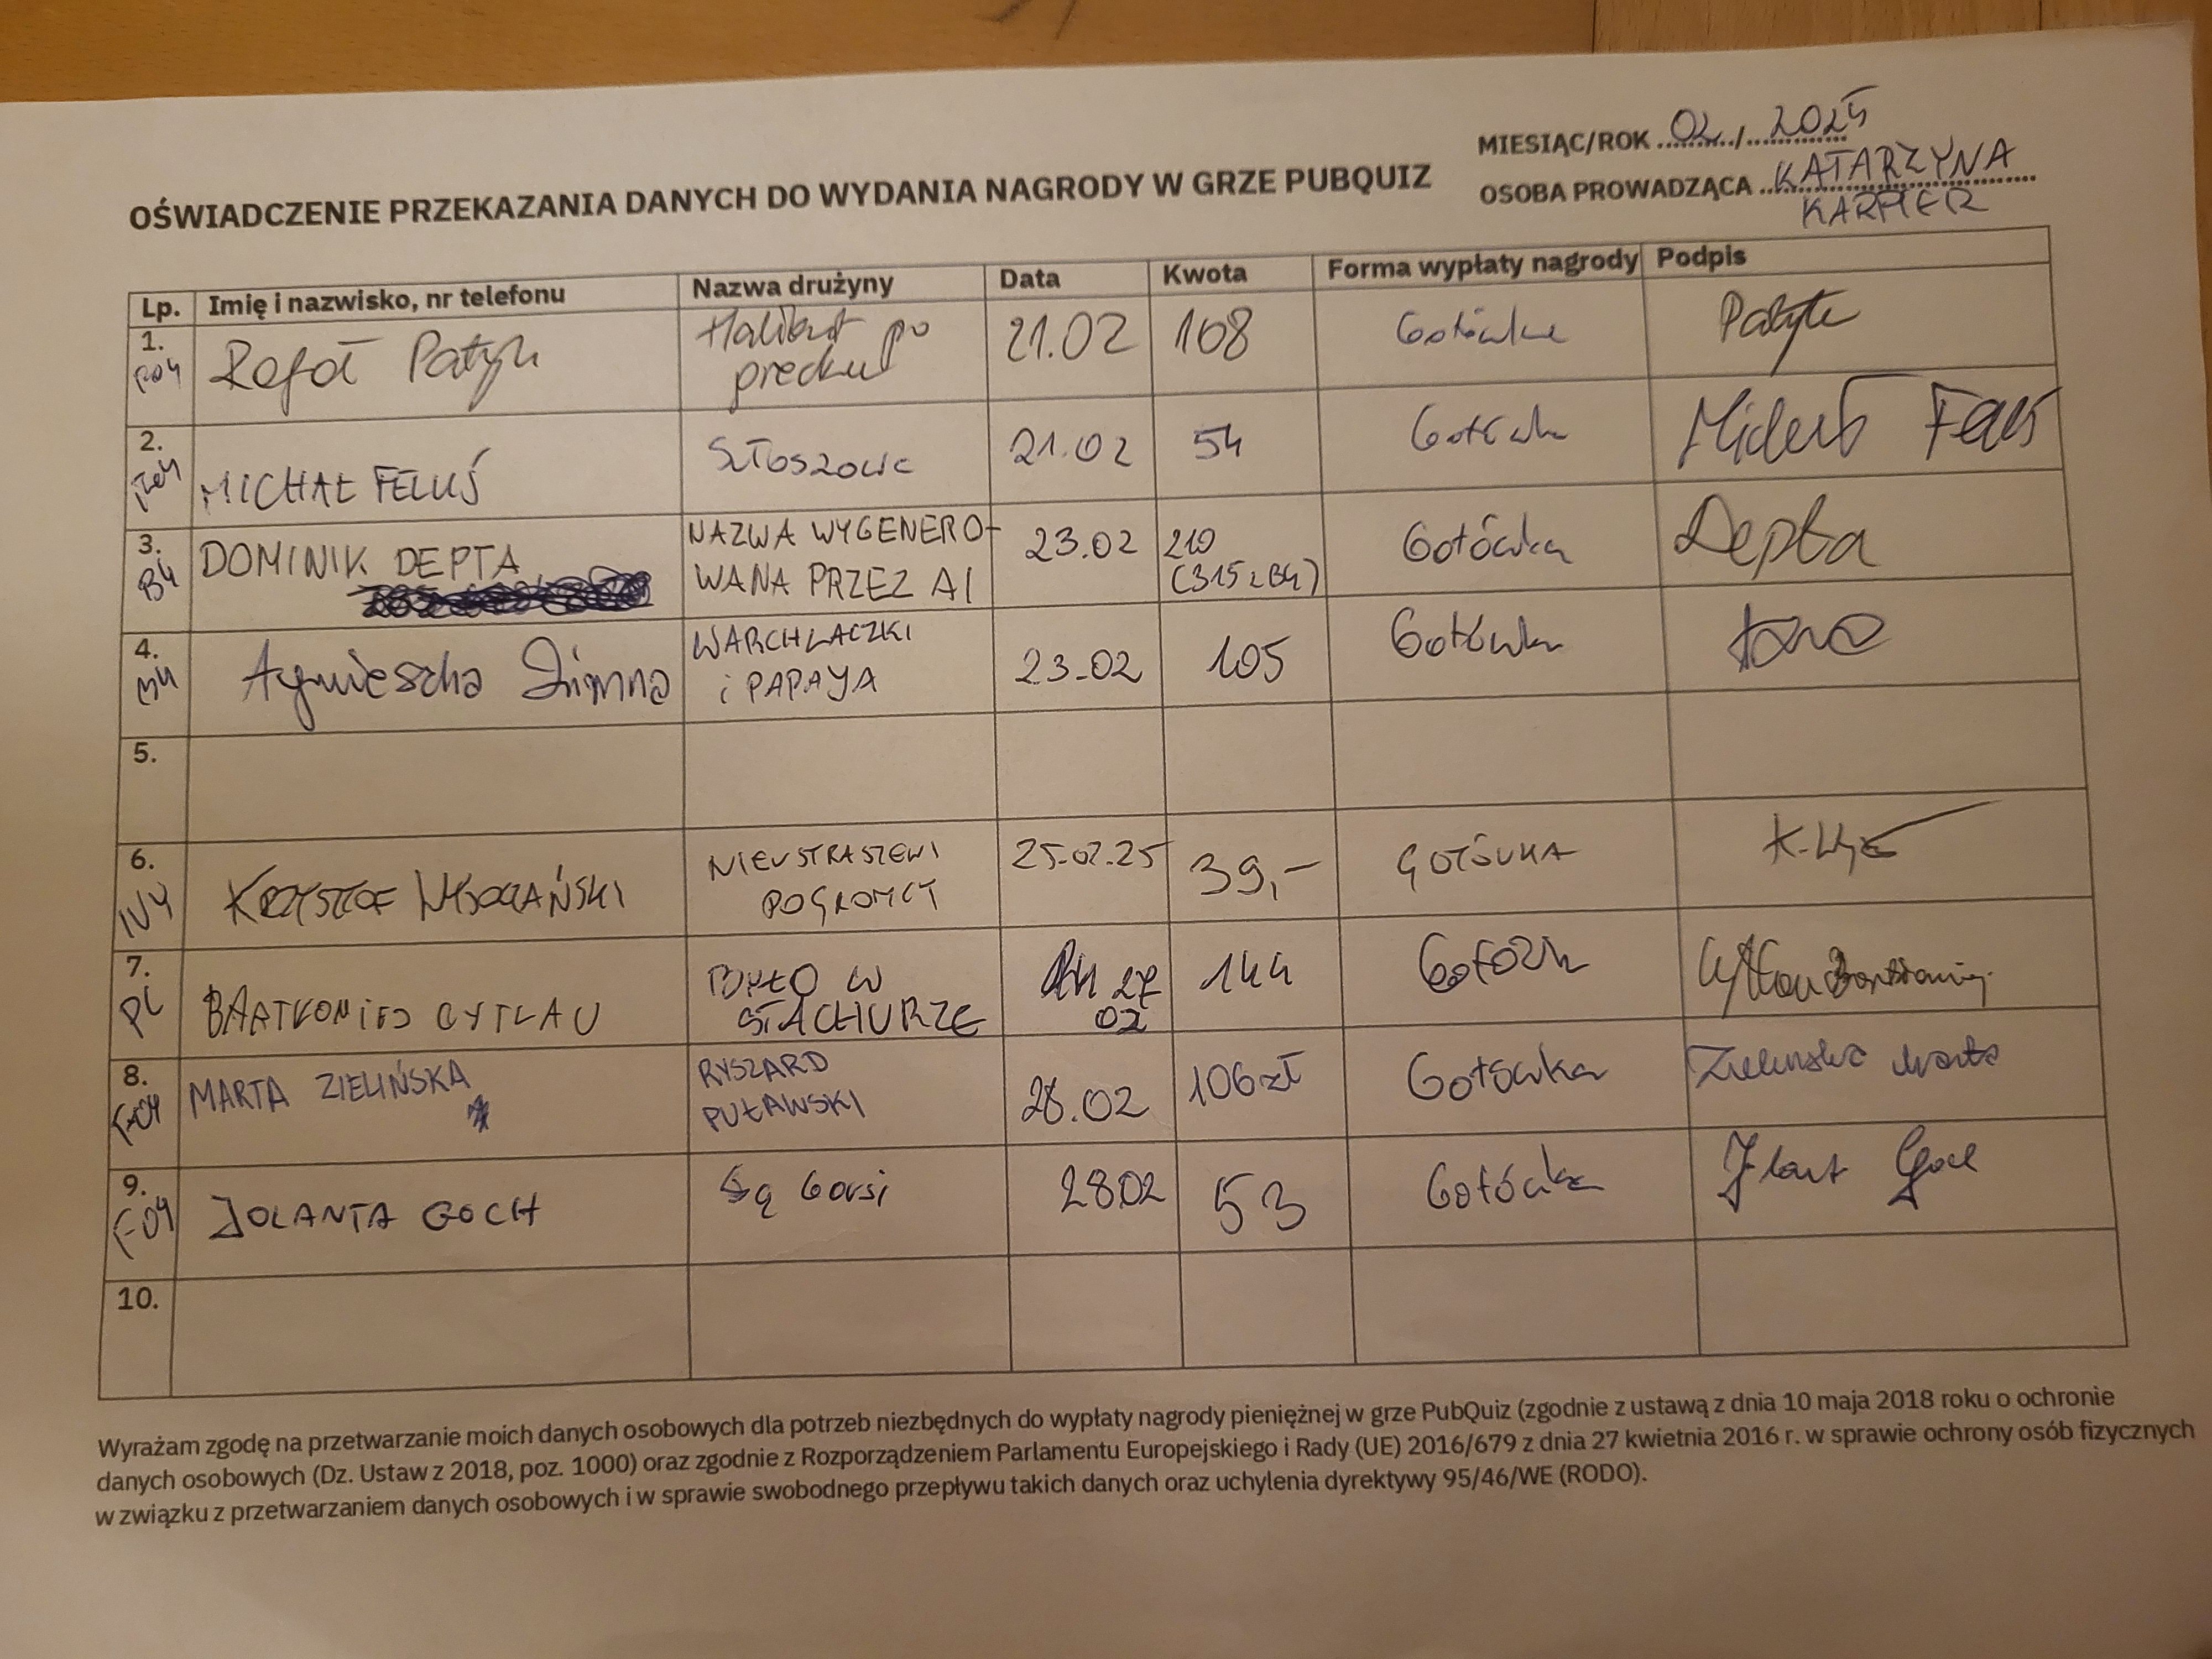 MIESIĄC/ROK 02 / 2025
OSOBA PROWADZĄCA KATARZYNA
KARMER
OŚWIADCZENIE PRZEKAZANIA DANYCH DO WYDANIA NAGRODY W GRZE PUBQUIZ
Lp. Imię i nazwisko, nr telefonu Nazwa drużyny Data Kwota Forma wypłaty nagrody Podpis
1. Rafał Patyk Halibut po 21.02 108 Gotówka Patyk
2. MICHAŁ FELUŚ 21.02 54 Gotówka
3. DOMINIK DEPTA NAZWA WYGENERO- 23.02 210 Gotówka Depta
B4 WANA PRZEZ AI (315 z B4)
4. Agnieszka Zimna WARCHLACZKI 23.02 105 Gotówka
i PAPAYA
5.
6. KRZYSZTOF NIEUSTRASZENI 25.02.25 39,- GOTÓWKA
POGROMCY
7. BARTŁOMIEJ CYTLAU BYŁO W 27 144
PL STACHURZE 02
8. MARTA ZIELIŃSKA RYSZARD 28.02 106 zł Gotówka Zielińska Marta
PUŁAWSKI
9. JOLANTA GOCH Są Gorsi 28.02 53 Gotówka
10.
Wyrażam zgodę na przetwarzanie moich danych osobowych dla potrzeb niezbędnych do wypłaty nagrody pieniężnej w grze PubQuiz (zgodnie z ustawą z dnia 10 maja 2018 roku o ochronie
danych osobowych (Dz. Ustaw z 2018, poz. 1000) oraz zgodnie z Rozporządzeniem Parlamentu Europejskiego i Rady (UE) 2016/679 z dnia 27 kwietnia 2016 r. w sprawie ochrony osób fizycznych
w związku z przetwarzaniem danych osobowych i w sprawie swobodnego przepływu takich danych oraz uchylenia dyrektywy 95/46/WE (RODO).